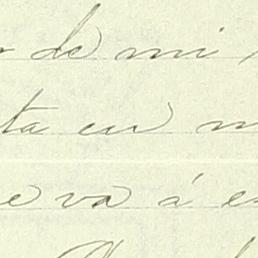 de mi
ta en
e va á